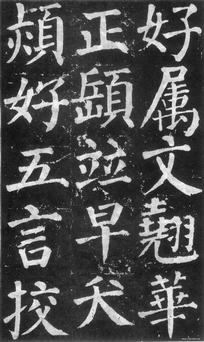 好属文翹華
正竝早夭
熲好五言挍